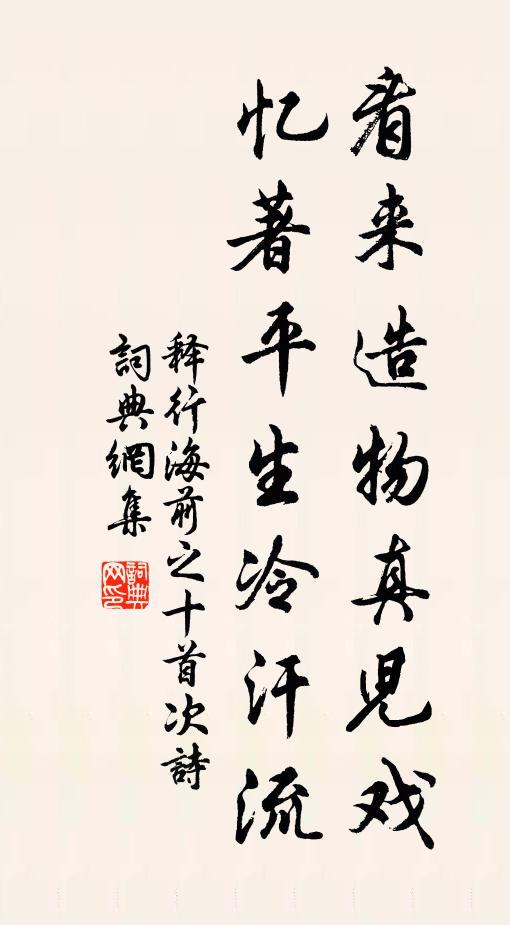 看来造物真児戏
忆著平生冷汗流
释行海前之十首次詩
詞典網集
詞典网印